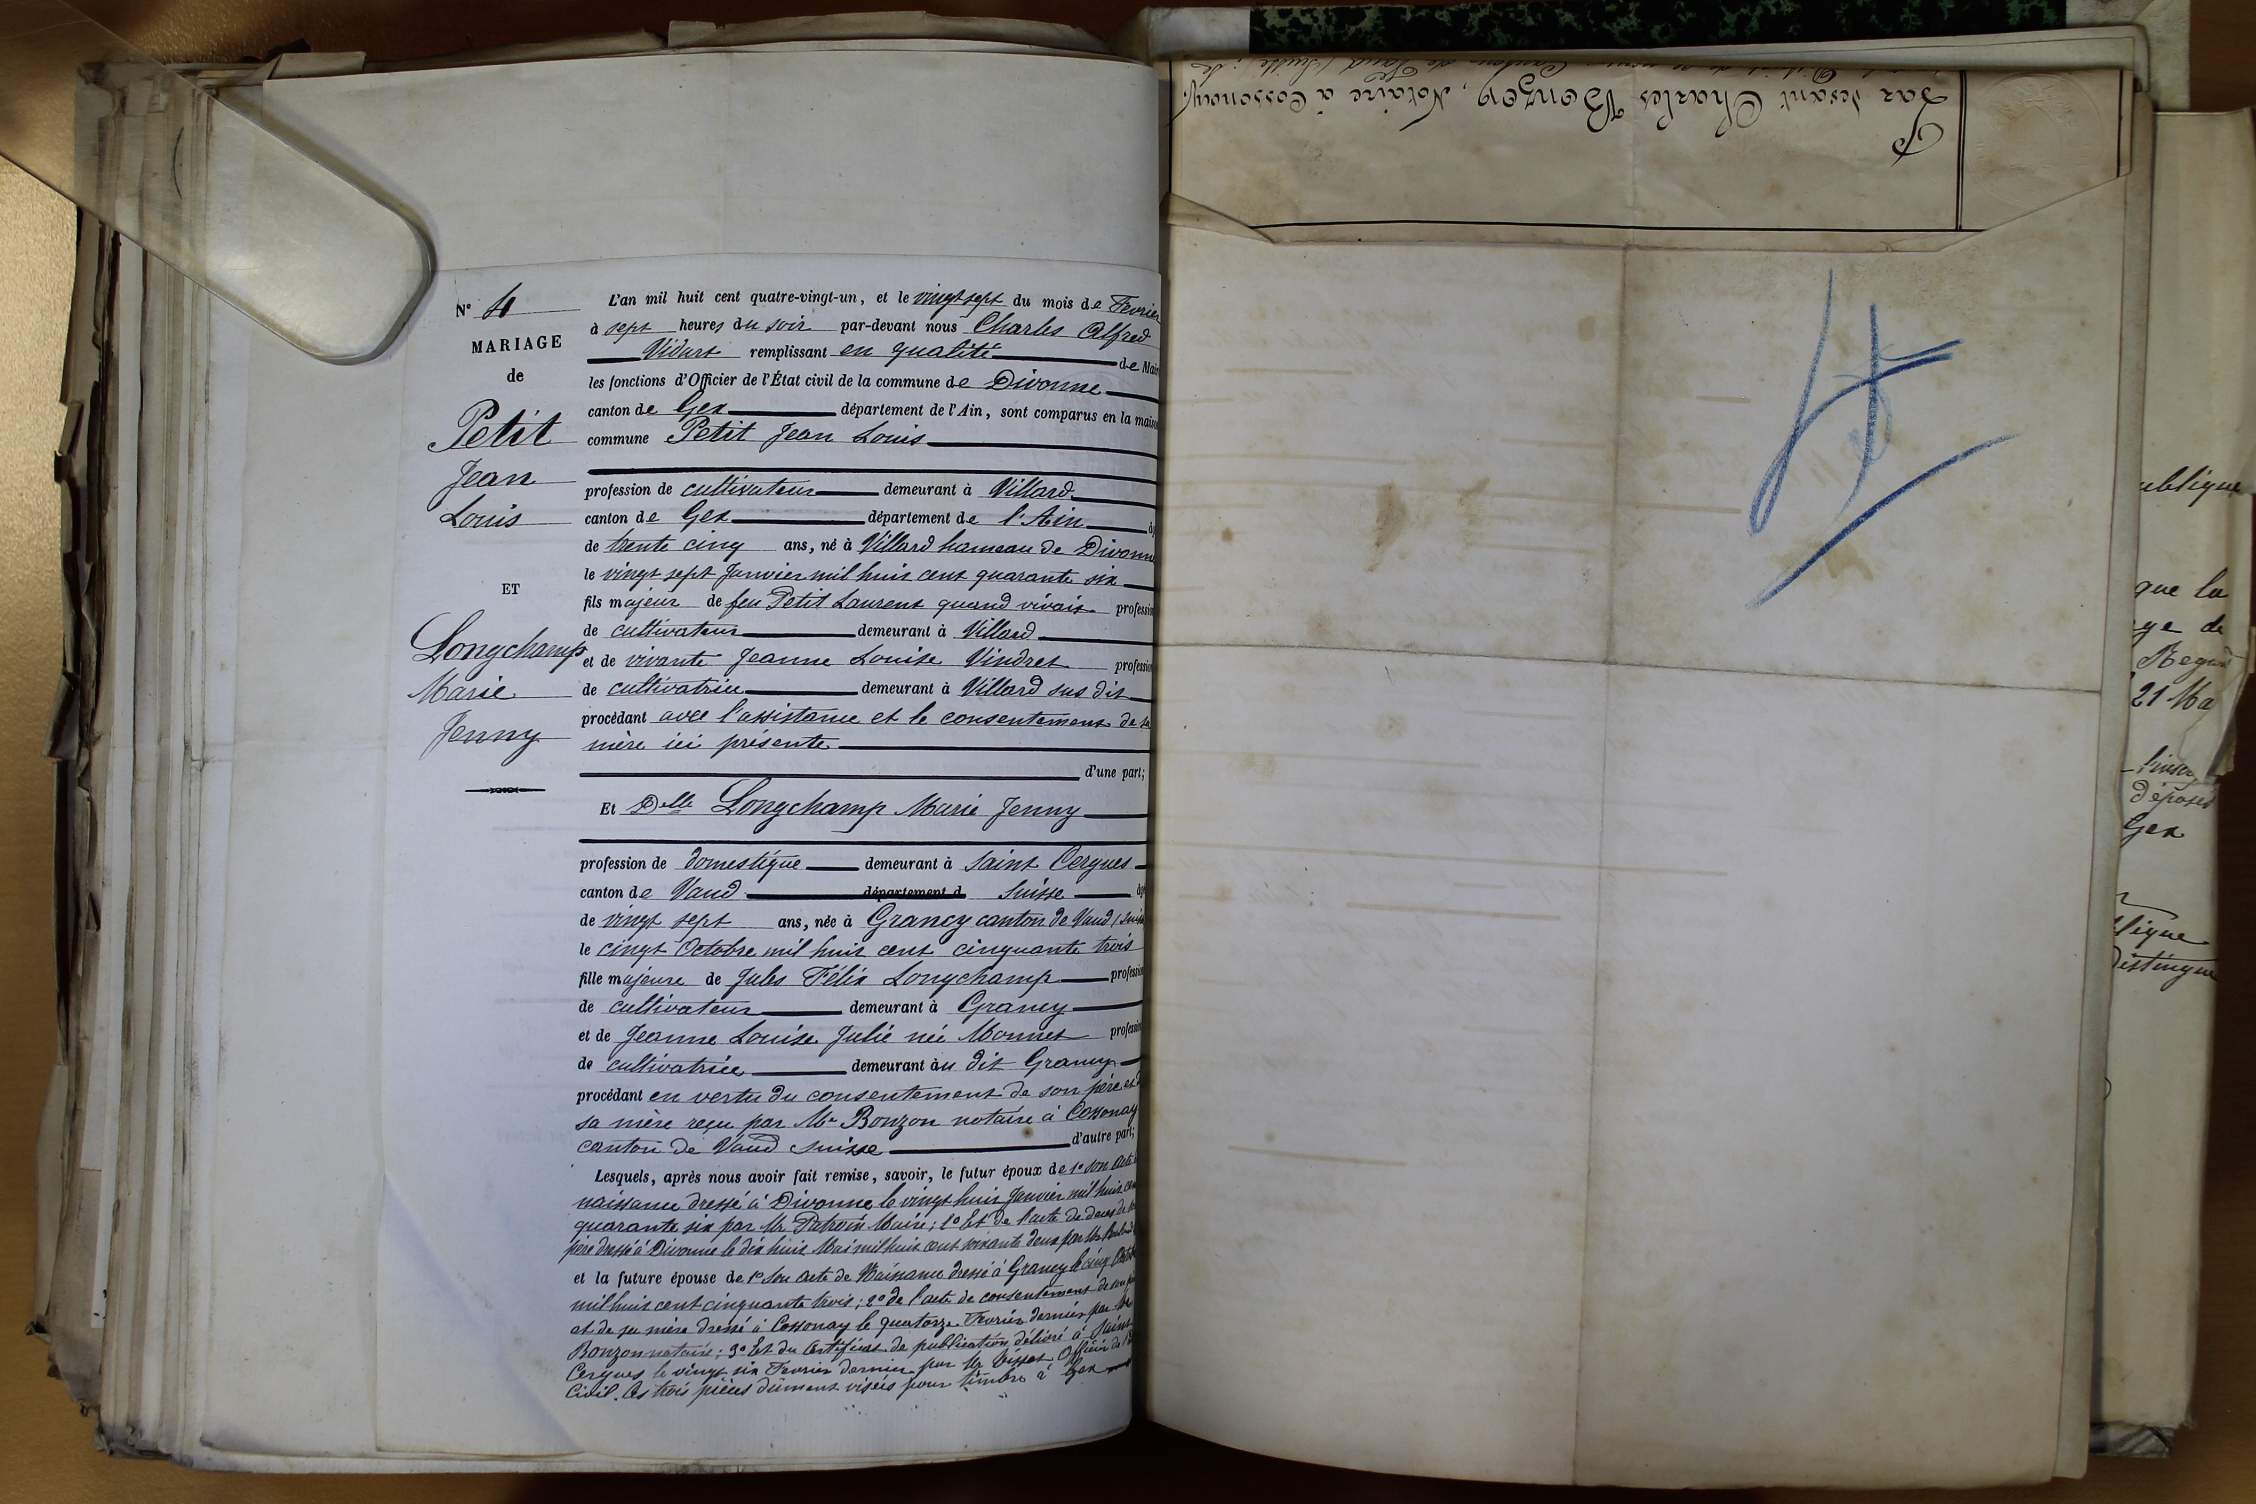 N° 4
MARIAGE
de
Petit
Jean
Louis
ET
Longchamp
Marie
Jenny
L'an mil huit cent quatre-vingt-un, et le vingt sept du mois de Fevrier
à sept heures du soir par-devant nous Charles Alfred
Vidart remplissant en qualité de Mair
les fonctions d'Officier de l'État civil de la commune de Divonne
canton de Gex département de l'Ain, sont comparus en la maison
commune Petit Jean Louis
profession de cultivateur demeurant à Villard
canton de Gex département de l'Ain âg
de trente cinq ans, né à Villard hameau de Divonne
le vingt sept Janvier mil huit cent quarante six
fils majeur de feu Petit Laurent quand vivait profession
de cultivateur demeurant à Villard
et de vivante Jeanne Louise Vindret profession
de cultivatrice demeurant à Villard sus dit
procédant avec l'assistance et le consentement de sa
mère ici présente
d'une part;
Et Delle Longchamp Marie Jenny
profession de domestique demeurant à Saint Cergues
canton de Vaud département d Suisse âg
de vingt sept ans, née à Grancy canton de Vaud (Suisse
le cinq Octobre mil huit cent cinquante trois
fille majeure de Jules Félix Longchamp profession
de cultivateur demeurant à Grancy
et de Jeanne Louise Julie née Monnet profession
de cultivatrice demeurant àu dit Grancy
procédant en vertu du consentement de son père et d
sa mère reçu par Mr Bonzon notaire à Cossonay
canton de Vaud Suisse d'autre part;
Lesquels, après nous avoir fait remise, savoir, le futur époux de 1° son acte
naissance dressé à Divonne le vingt huit Janvier mil huit cent
quarante six par Mr Maire; 2° Et de l'acte de deces de
père dressé à Divonne le dix huit Mai mil huit cent soixante deux par Mr
et la future épouse de 1° Son acte de Naissance dressé à Grancy le cinq Octobre
mil huit cent cinquante trois; 2° de l'acte de consentement de son père
et de sa mère dressé à Cossonay le quatorze Fevrier dernier par Mr
Bonzon notaire; 3° Et du Certificat de publication délivré à Saint
Cergues le vingt six Fevrier dernier par Mr Officier de l'
Civil. Ces trois pièces dûment visées pour timbre à Gex
Par devant Charles Bonzon, Notaire à Cossonay,
ublique
que la
ge de
21 Ma
déposés
Gex
lique
distingue